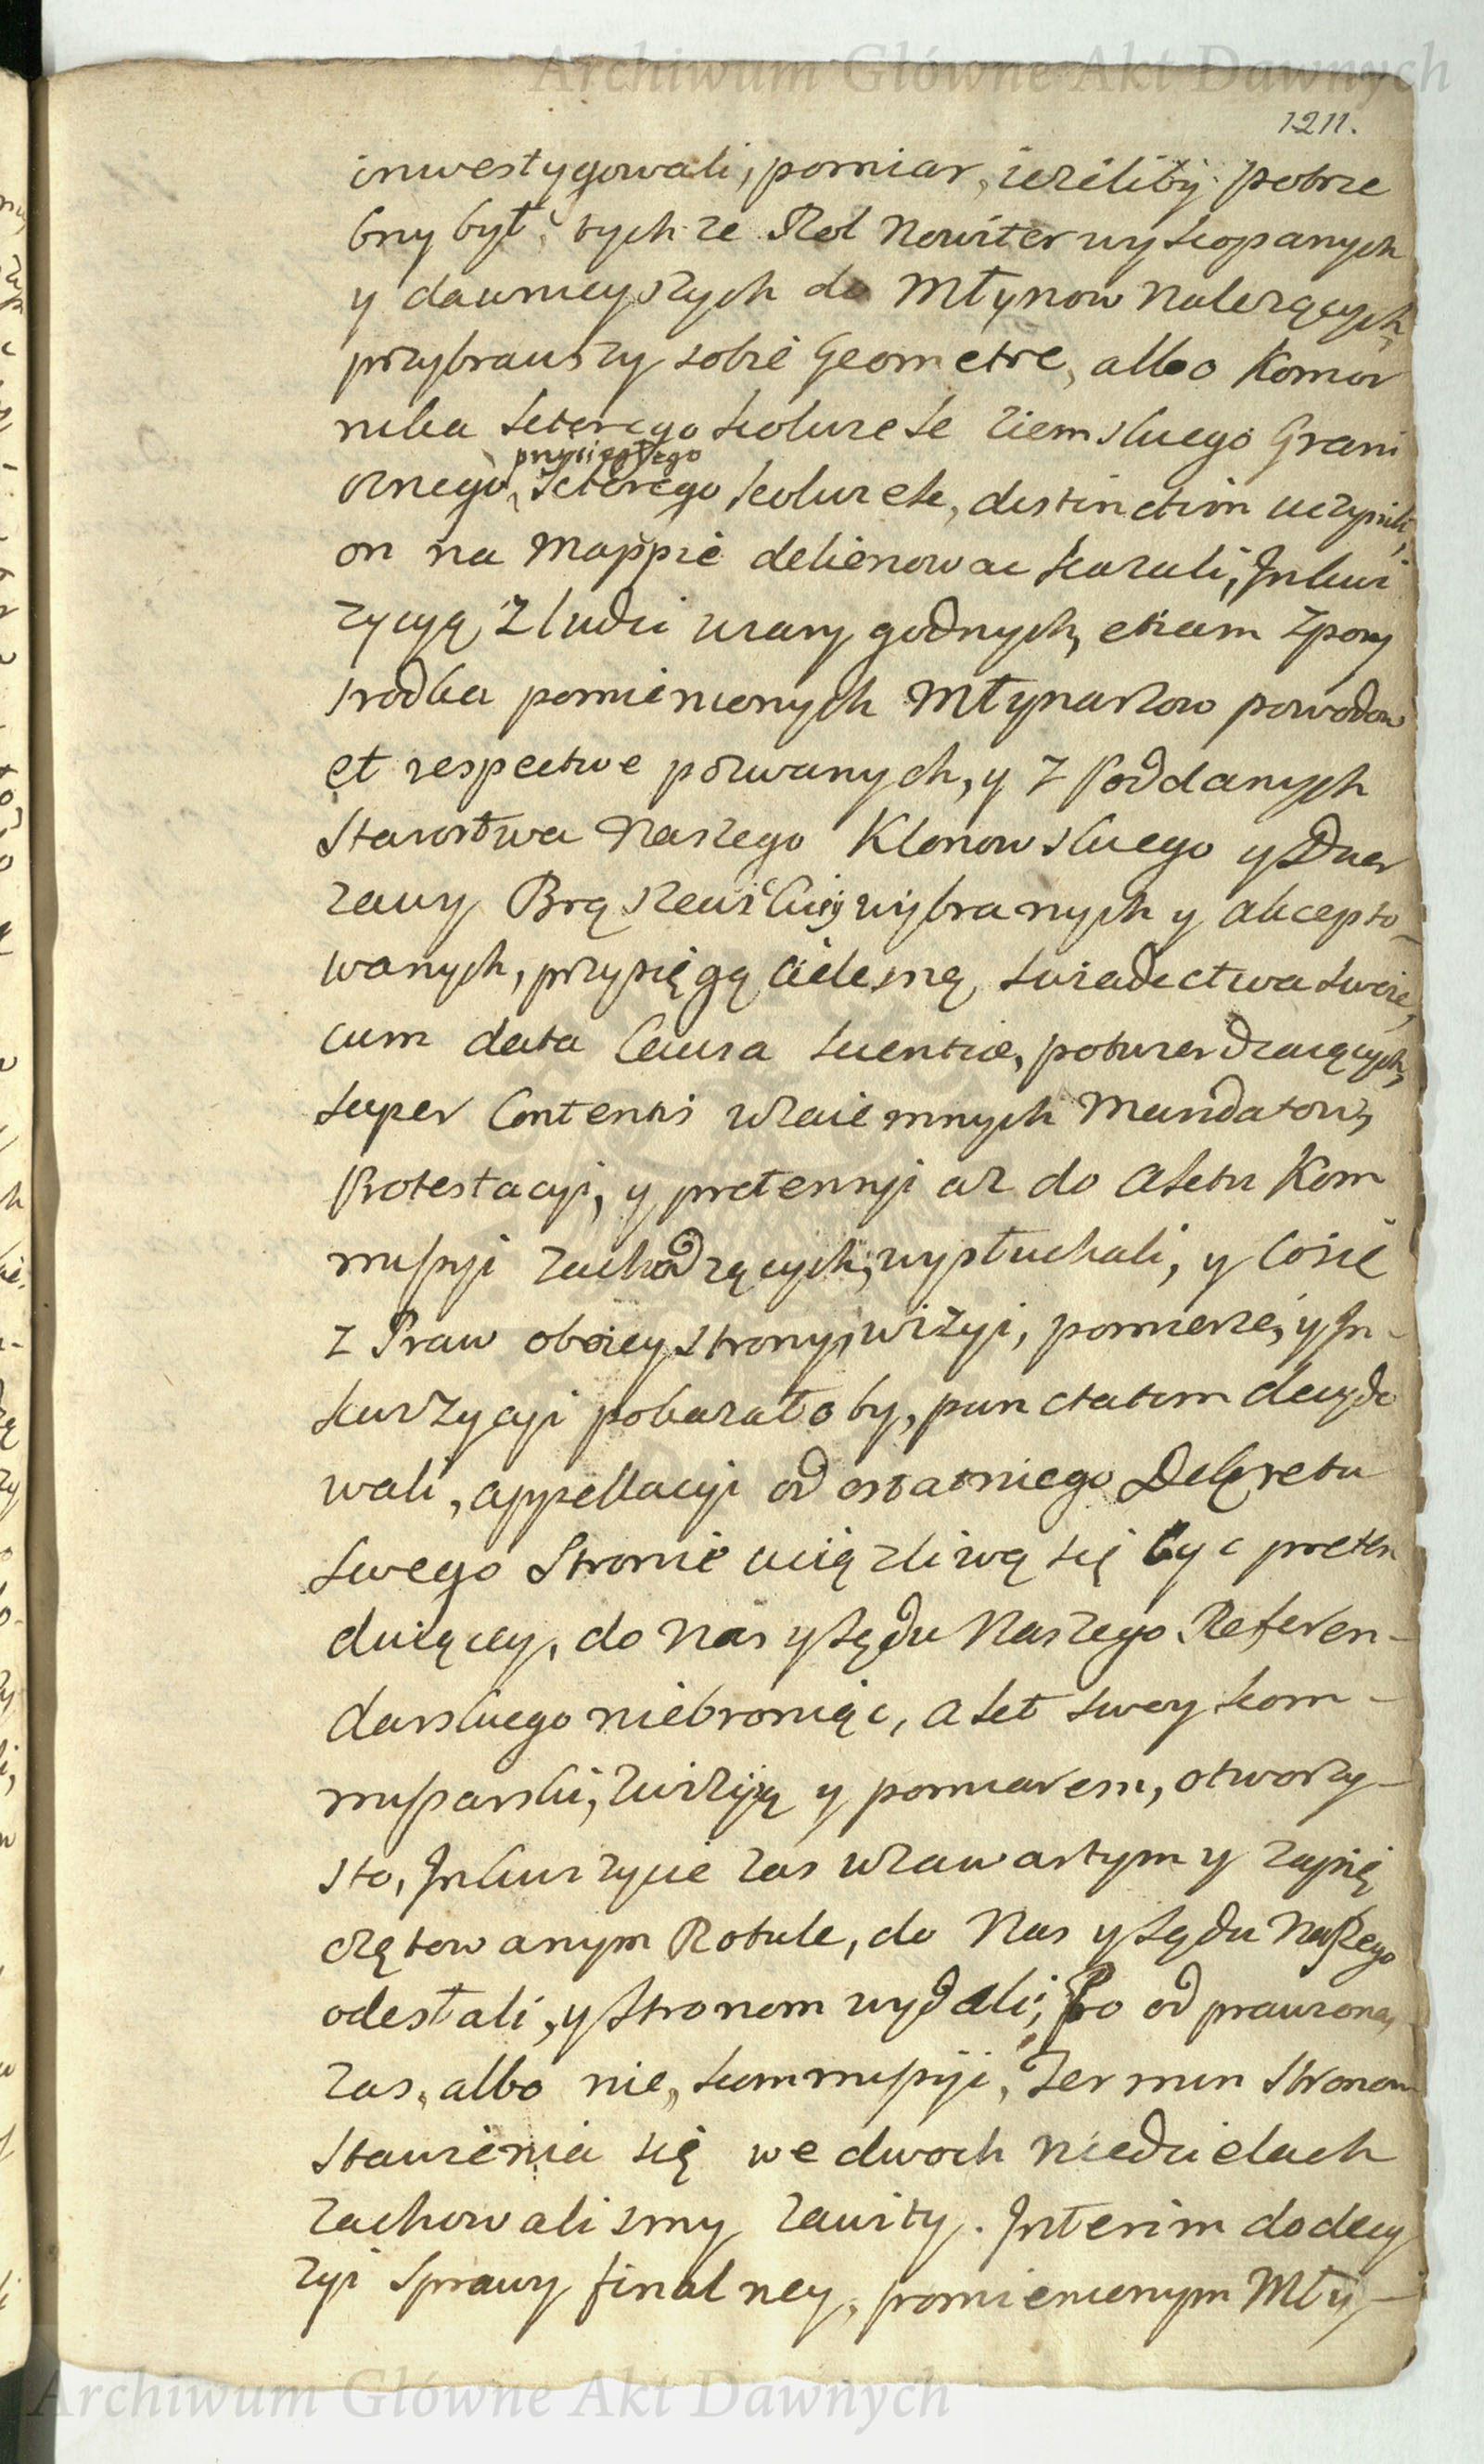 Archiwum Główne Akt Dawnych
1211.
inwestygowali, pomiar, ieżeliby potrze
bny był, tychże Rol Nowiter wykopanych
y dawnieyszych do Młynow Należących,
przybrawszy sobie Geometrę, albo Komor
nika ktorego kolwiek ziemskiego Grani
przysięgłego
cznego, ktorego kolwiek, distinctim uczynili,
on na Mappie delienowac kazali, Inkwi
zycyą z ludzi wiary godnych, etiam z pony
srodka pomienionych Młynarzow powodow
et respective pozwanych, y z Poddanych
Starostwa Naszego Klonowskiego y Dzier
żawy Brąszewskiej wybranych y akcepto-
wanych, przysięgą cielesną, swiadectwa swoie,
cum data Causa scientiae, potwierdzaiących,
super Contentis wzaiemnych Mandatow,
Protestacyi, y pretensyi aż do Aktu Kom
missyi zachodzących, wysłuchali, y cosię
z Praw oboiey strony, wizyi, pomierze, y In-
kwizycyi pokazało by, punctatim decydo
wali, appellacyi od ostatniego Dekretu
swego Stronie uciążliwą się być preten
duiącey, do Nas y Sądu Naszego Referen-
darskiego niebroniąc, Akt swoy kom-
missarski, z wizyią y pomiarem, otworzy-
sto, Inkwizycie zas wzawartym y zapię
czętowanym Rotule, do Nas y Sądu Naszego
odesłali, y Stronom wydali; Po odprawioney
zas, albo nie, kommissyi, Termin Stronom
Stawienia się we dwoch Niedzielach
zachowalismy zawity. Interim do decy
zyi Sprawy finalney, pomienionym Mły-
Archiwum Główne Akt Dawnych